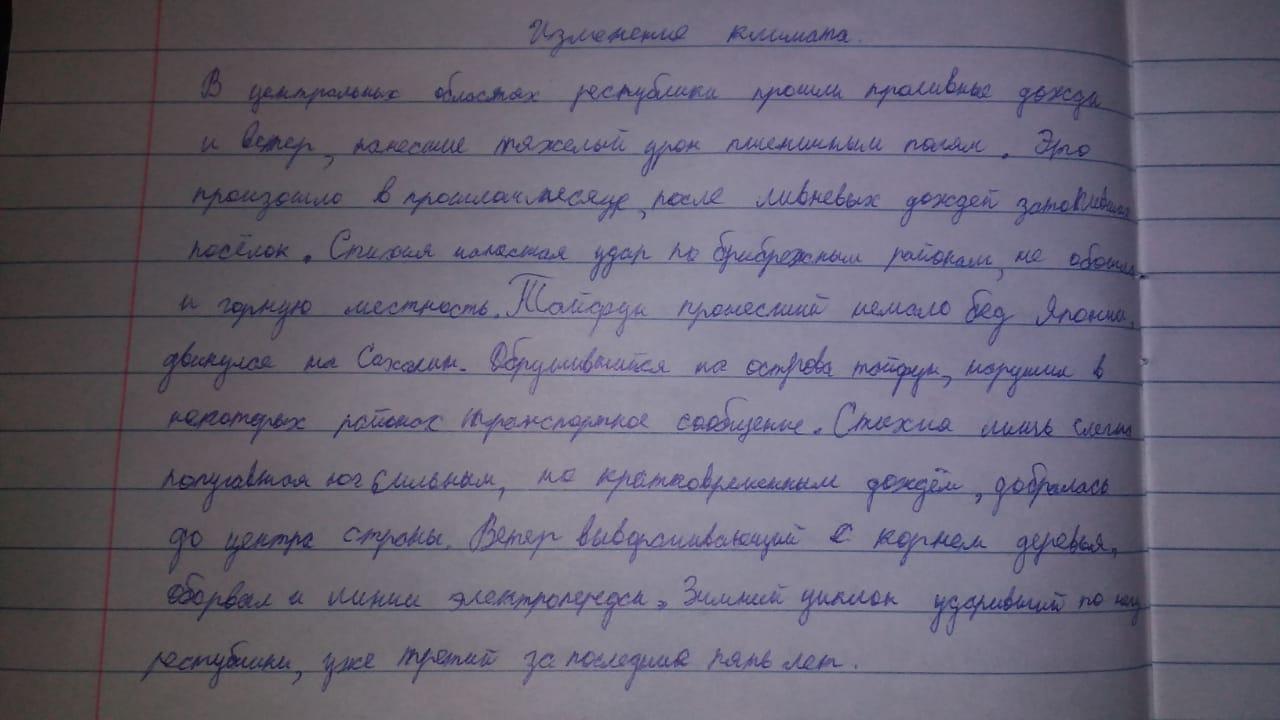 Изменение климата.
В центральных областях республики прошли проливные дожди
и ветер, нанесшие тяжелый урон пшеничным полям. Это
произошло в прошлом месяце, после ливневых дождей затопивших
посёлок. Стихия нанесшая удар по прибрежным районам, не обошла
и горную местность. Тайфун пронесший немало бед Японии,
двинулся на Сахалин. Обрушившийся на острова тайфун, нарушил в
некоторых районах транспортное сообщение. Стихия лишь слегка
попугавшая юг сильным, но кратковременным дождём, добралась
до центра страны. Ветер выворачивающий с корнем деревья,
оборвал и линии электропередач. Зимний циклон ударивший по югу
республики, уже третий за последние пять лет.